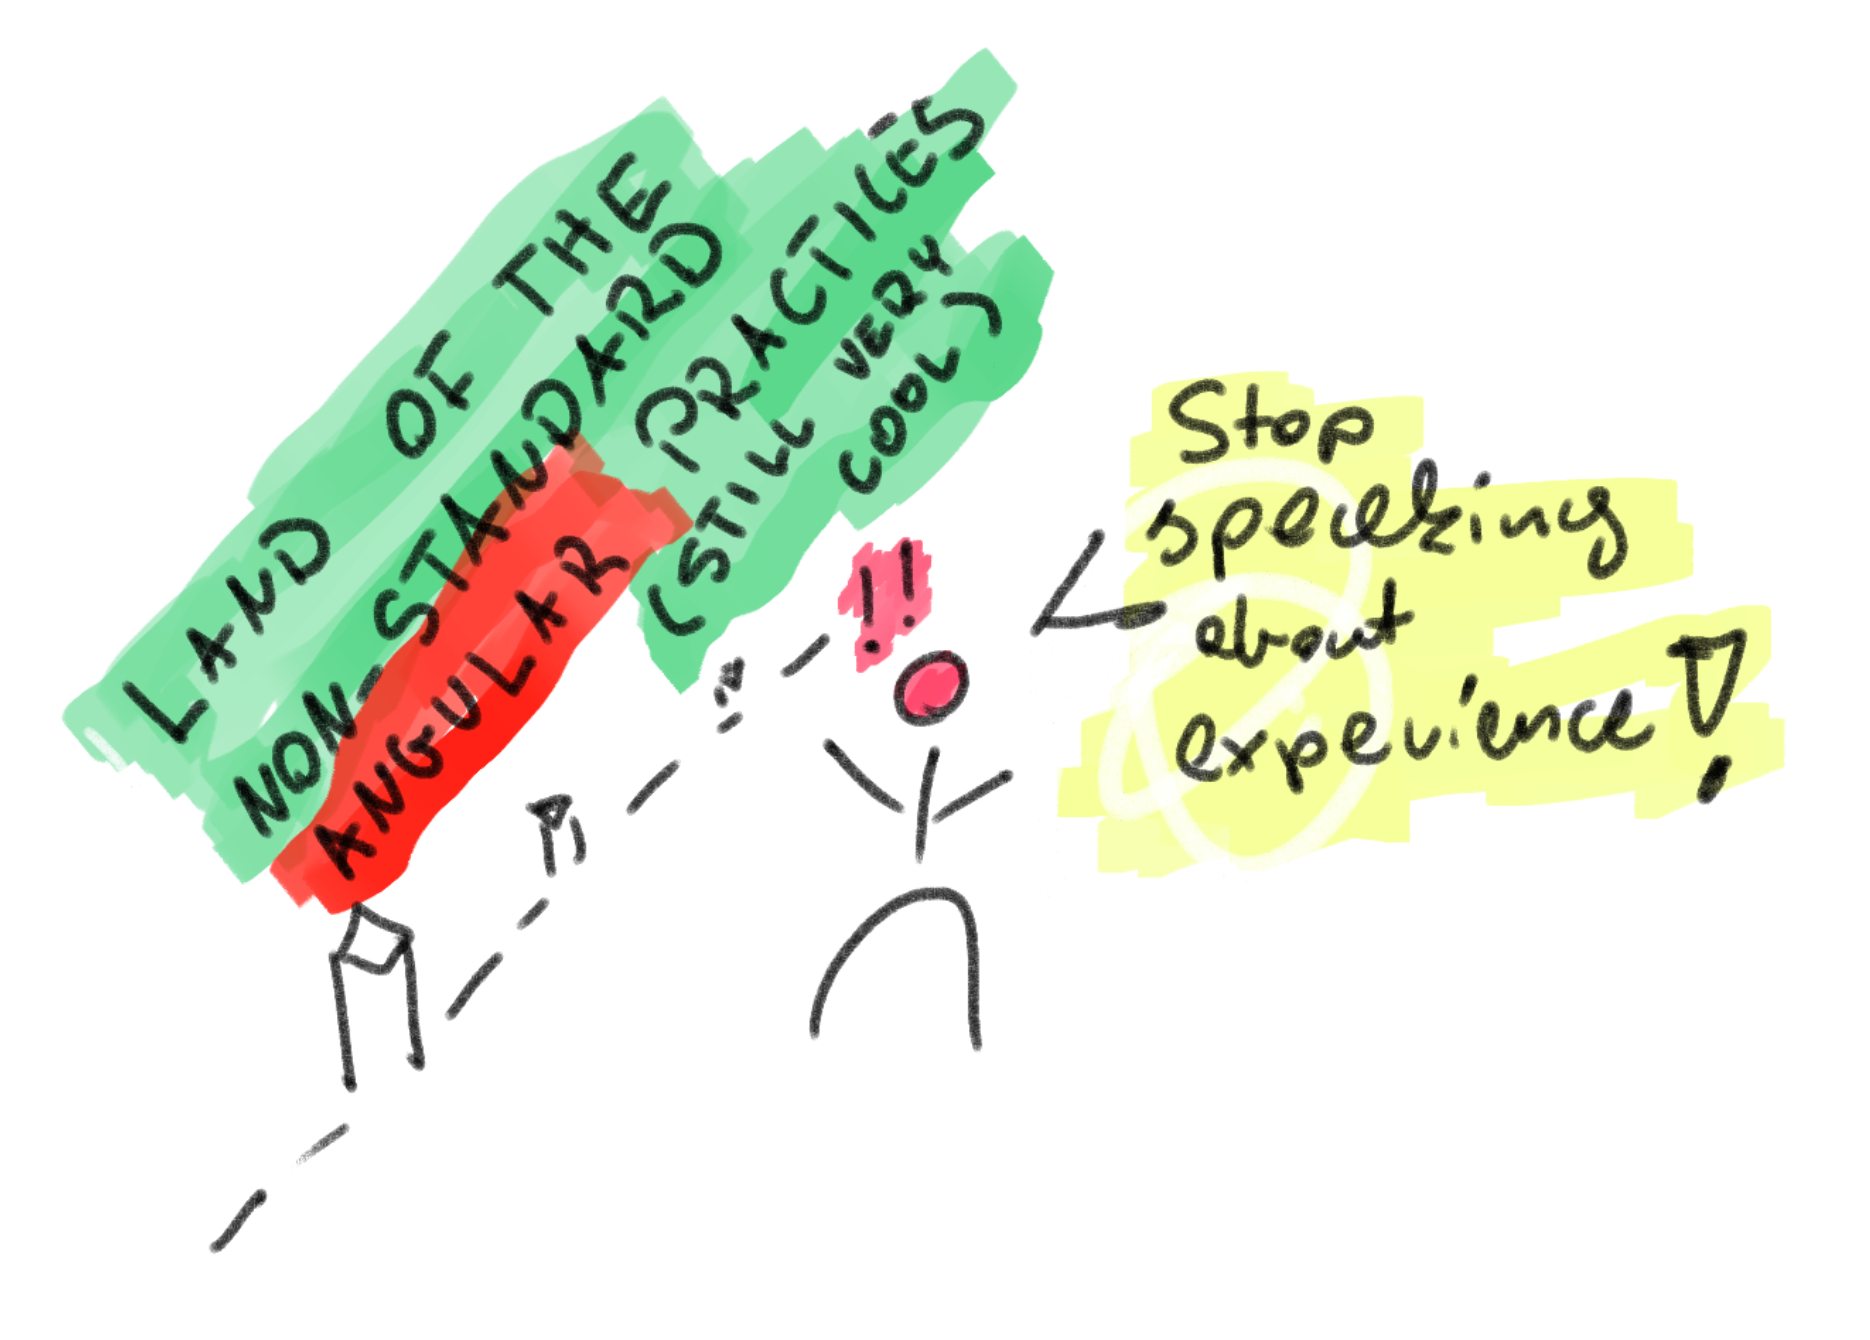 LAND OF THE
NON-STANDARD
ANGULAR PRACTICES
(STILL VERY
COOL)
!!
Stop
speaking
about
experience!